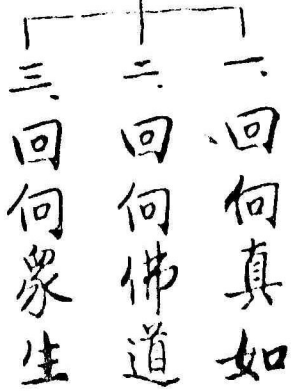 一、回向真如
二、回向佛道
三、回向眾生